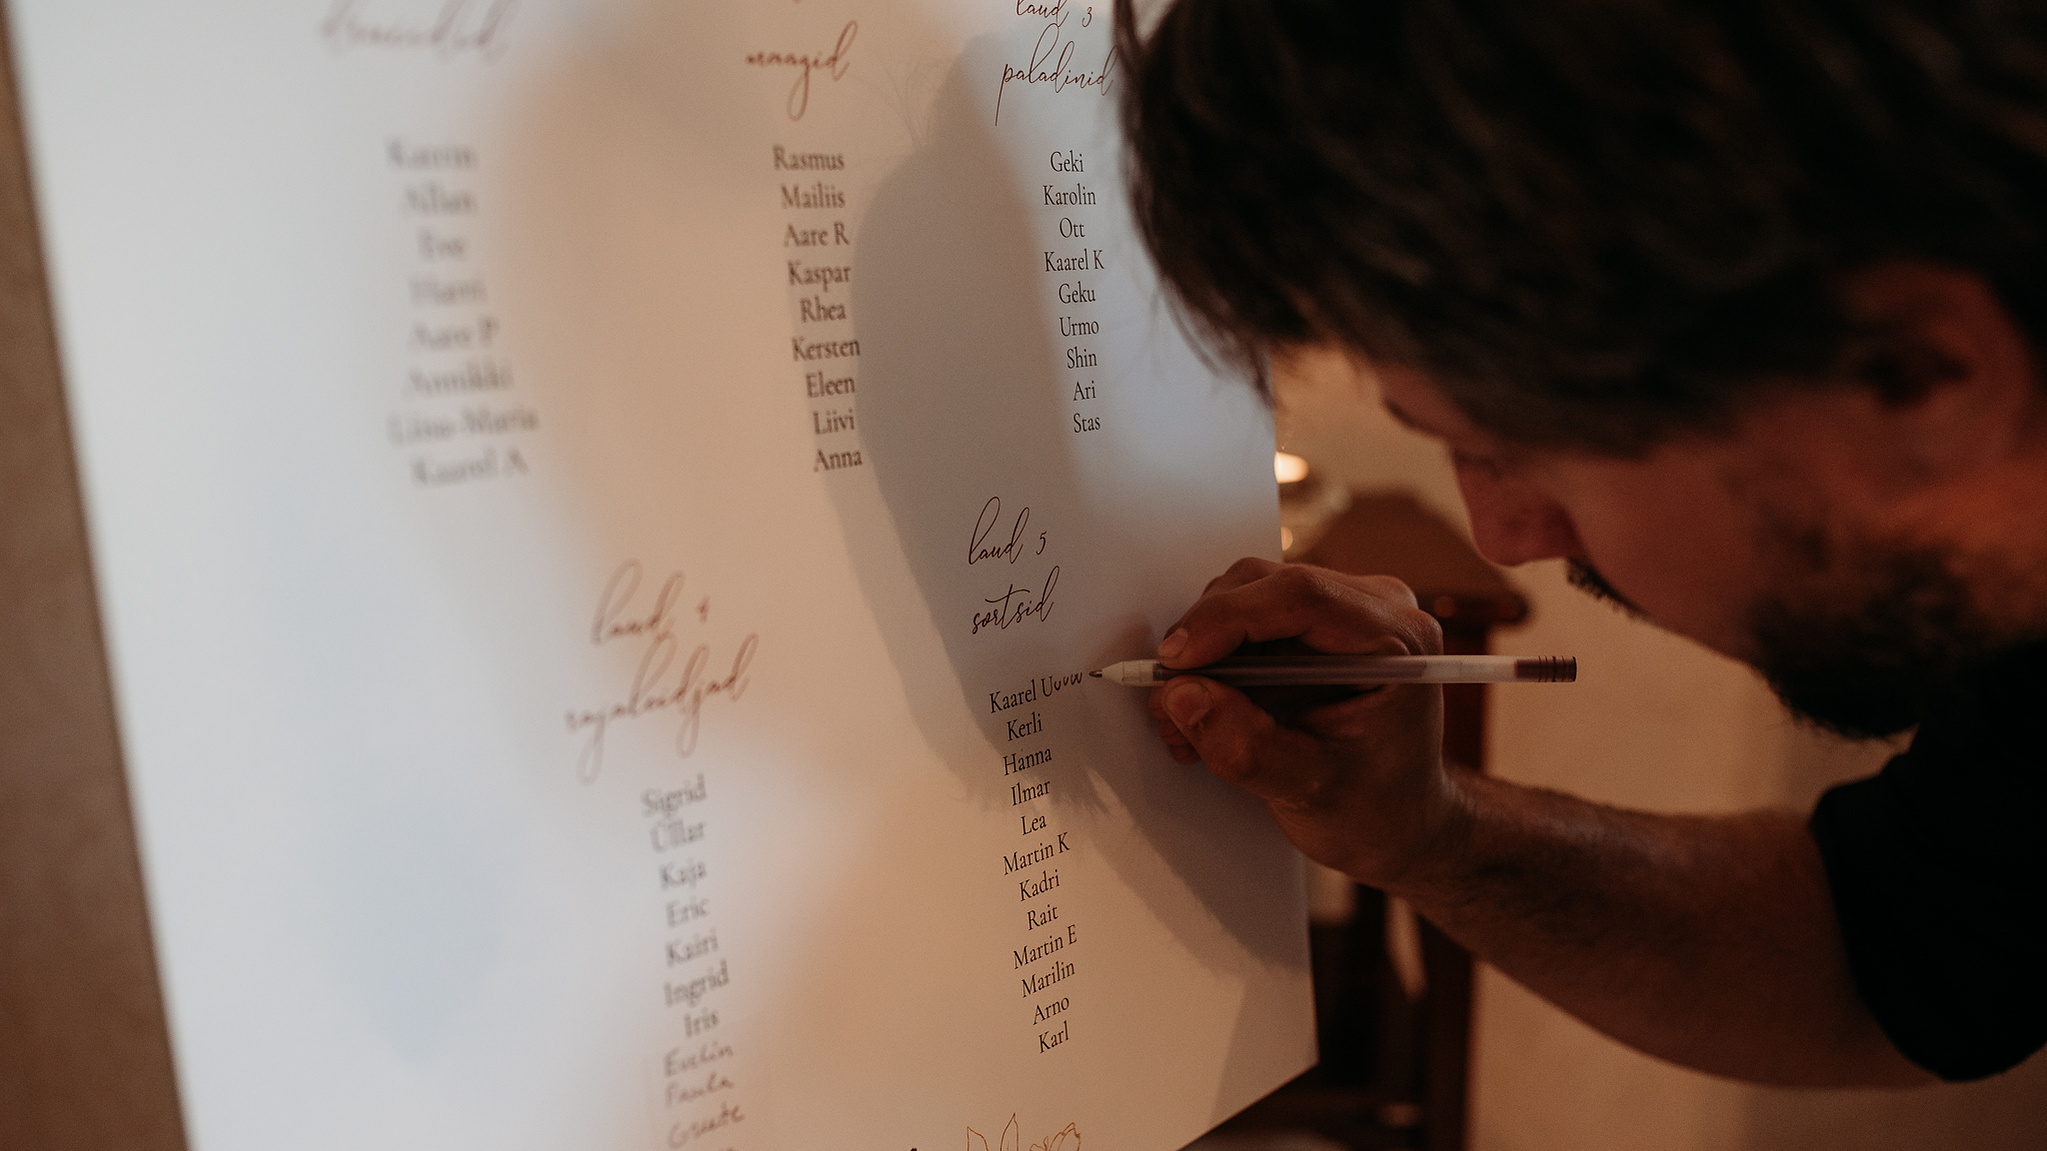 druiidid
Katrin
Allan
Eve
Harri
Aare P
Annikki
Liina-Maria
Kaarel A
maagid
Rasmus
Mailiis
Aare R
Kaspar
Rhea
Kersten
Eleen
Liivi
Anna
laud 3
paladinid
Geki
Karolin
Ott
Kaarel K
Geku
Urmo
Shin
Ari
Stas
laud 4
rajaleidjad
Sigrid
Üllar
Kaja
Eric
Kairi
Ingrid
Iris
Evelin
Paula
laud 5
sortsid
Kaarel
Kerli
Hanna
Ilmar
Lea
Martin K
Kadri
Rait
Martin E
Marilin
Arno
Karl